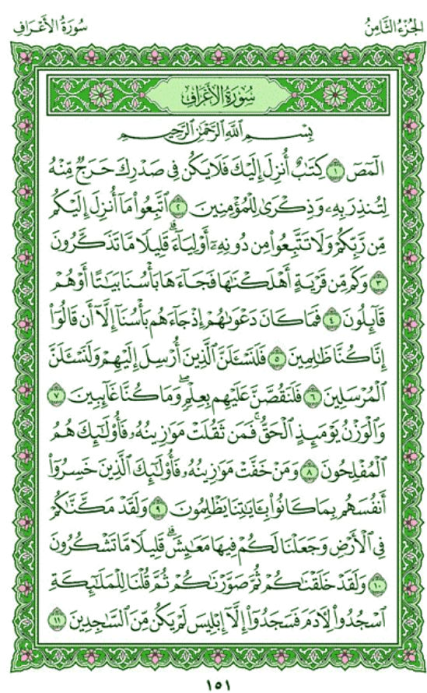 الجزء الثامن
سورة الأعراف
سُورَةُ الأَعْرَافِ
بِسْمِ اللَّهِ الرَّحْمَٰنِ الرَّحِيمِ
الٓمٓصٓ ١ كِتَٰبٌ أُنزِلَ إِلَيْكَ فَلَا يَكُن فِي صَدْرِكَ حَرَجٌ مِّنْهُ
لِتُنذِرَ بِهِۦ وَذِكْرَىٰ لِلْمُؤْمِنِينَ ٢ ٱتَّبِعُوا۟ مَآ أُنزِلَ إِلَيْكُم
مِّن رَّبِّكُمْ وَلَا تَتَّبِعُوا۟ مِن دُونِهِۦٓ أَوْلِيَآءَ ۗ قَلِيلًا مَّا تَذَكَّرُونَ
٣ وَكَم مِّن قَرْيَةٍ أَهْلَكْنَٰهَا فَجَآءَهَا بَأْسُنَا بَيَٰتًا أَوْ هُمْ
قَآئِلُونَ ٤ فَمَا كَانَ دَعْوَىٰهُمْ إِذْ جَآءَهُم بَأْسُنَآ إِلَّآ أَن قَالُوٓا۟
إِنَّا كُنَّا ظَٰلِمِينَ ٥ فَلَنَسْـَٔلَنَّ ٱلَّذِينَ أُرْسِلَ إِلَيْهِمْ وَلَنَسْـَٔلَنَّ
ٱلْمُرْسَلِينَ ٦ فَلَنَقُصَّنَّ عَلَيْهِم بِعِلْمٍ ۖ وَمَا كُنَّا غَآئِبِينَ ٧
وَٱلْوَزْنُ يَوْمَئِذٍ ٱلْحَقُّ ۚ فَمَن ثَقُلَتْ مَوَٰزِينُهُۥ فَأُو۟لَٰٓئِكَ هُمُ
ٱلْمُفْلِحُونَ ٨ وَمَنْ خَفَّتْ مَوَٰزِينُهُۥ فَأُو۟لَٰٓئِكَ ٱلَّذِينَ خَسِرُوٓا۟
أَنفُسَهُم بِمَا كَانُوا۟ بِـَٔايَٰتِنَا يَظْلِمُونَ ٩ وَلَقَدْ مَكَّنَّٰكُمْ
فِي ٱلْأَرْضِ وَجَعَلْنَا لَكُمْ فِيهَا مَعَٰيِشَ ۗ قَلِيلًا مَّا تَشْكُرُونَ
١٠ وَلَقَدْ خَلَقْنَٰكُمْ ثُمَّ صَوَّرْنَٰكُمْ ثُمَّ قُلْنَا لِلْمَلَٰٓئِكَةِ
ٱسْجُدُوا۟ لِـَٔادَمَ فَسَجَدُوٓا۟ إِلَّآ إِبْلِيسَ لَمْ يَكُن مِّنَ ٱلسَّٰجِدِينَ ١١
١٥١